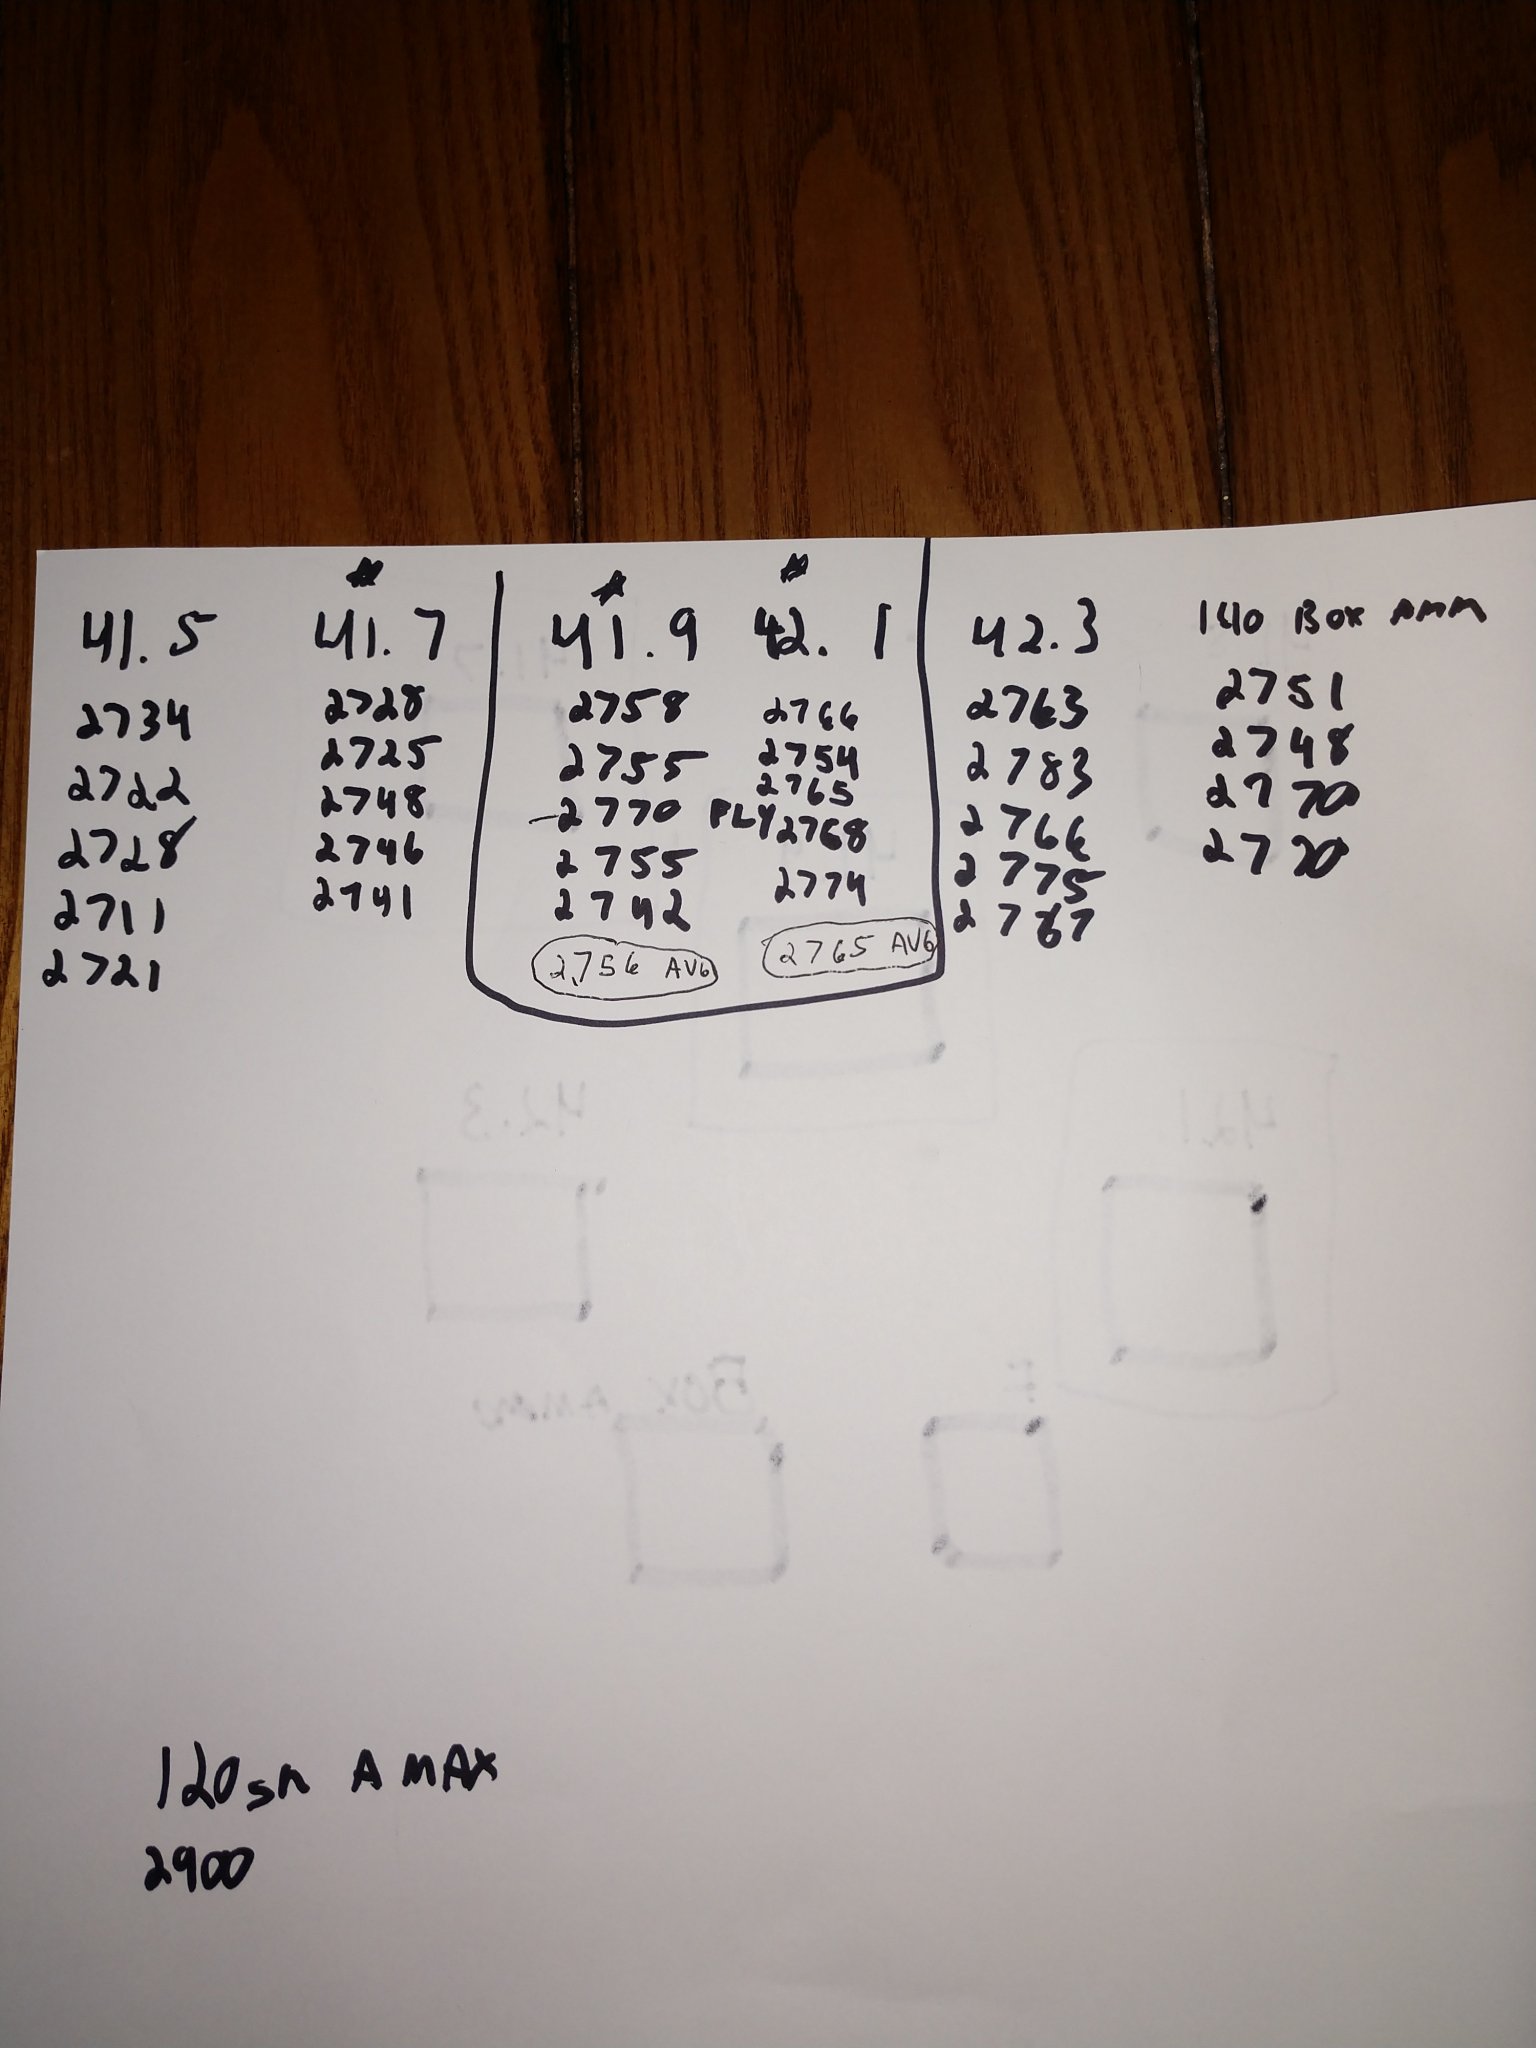 41.5 41.7 41.9 42.1 42.3 140 Box Amm
2734 2728 2758 2766 2763 2751
2722 2725 2755 2754 2783 2748
2728 2748 2770 2765 2766 2770
2711 2746 2755 FLY 2768 2775 2770
2721 2741 2742 2774 2767
2,756 AVG 2765 AVG
42.3 42.1
Box Amm F
120gn A MAX
2900